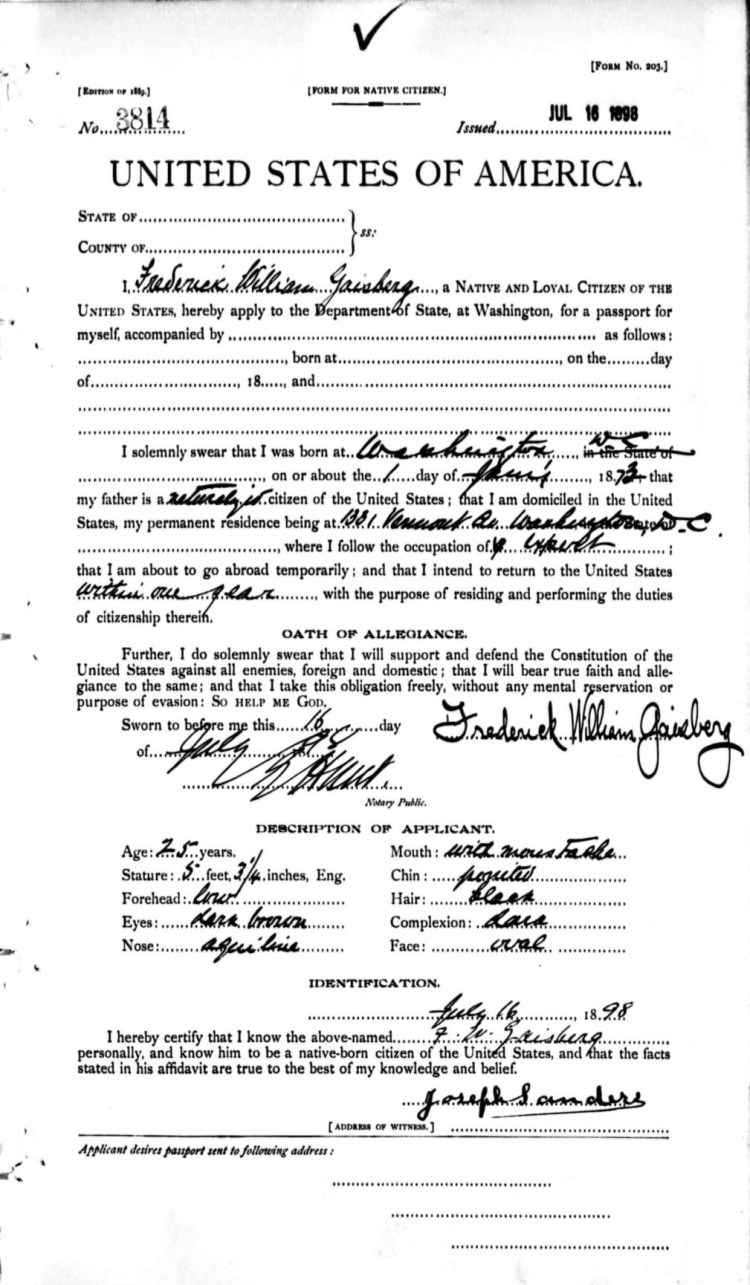 [FORM NO. 203.]
[EDITION OF 1889.] [FORM FOR NATIVE CITIZEN.]
No. 3814 Issued JUL 16 1898
UNITED STATES OF AMERICA.
STATE OF
COUNTY OF ss:
I, Frederick William Gaisberg, a NATIVE AND LOYAL CITIZEN OF THE
UNITED STATES, hereby apply to the Department of State, at Washington, for a passport for
myself, accompanied by as follows:
, born at, on the day
of, 18, and
I solemnly swear that I was born at Washington, D C in the State of
, on or about the 1 day of, 1873, that
my father is a citizen of the United States; that I am domiciled in the United
States, my permanent residence being at 1331 Vermont Av. Washington, D. C
, where I follow the occupation of expert;
that I am about to go abroad temporarily; and that I intend to return to the United States
within one year, with the purpose of residing and performing the duties
of citizenship therein.
OATH OF ALLEGIANCE.
Further, I do solemnly swear that I will support and defend the Constitution of the
United States against all enemies, foreign and domestic; that I will bear true faith and alle-
giance to the same; and that I take this obligation freely, without any mental reservation or
purpose of evasion: SO HELP ME GOD.
Sworn to before me this 16 day Frederick William Gaisberg
of July 98
Notary Public.
DESCRIPTION OF APPLICANT.
Age: 25 years. Mouth: with moustache
Stature: 5 feet, 3 1/4 inches, Eng. Chin: pointed
Forehead: low Hair: black
Eyes: dark brown Complexion: dark
Nose: aquiline Face: oval
IDENTIFICATION.
July 16, 1898
I hereby certify that I know the above-named F. W. Gaisberg
personally, and know him to be a native-born citizen of the United States, and that the facts
stated in his affidavit are true to the best of my knowledge and belief.
Joseph Sanders
[ADDRESS OF WITNESS.]
Applicant desires passport sent to following address: